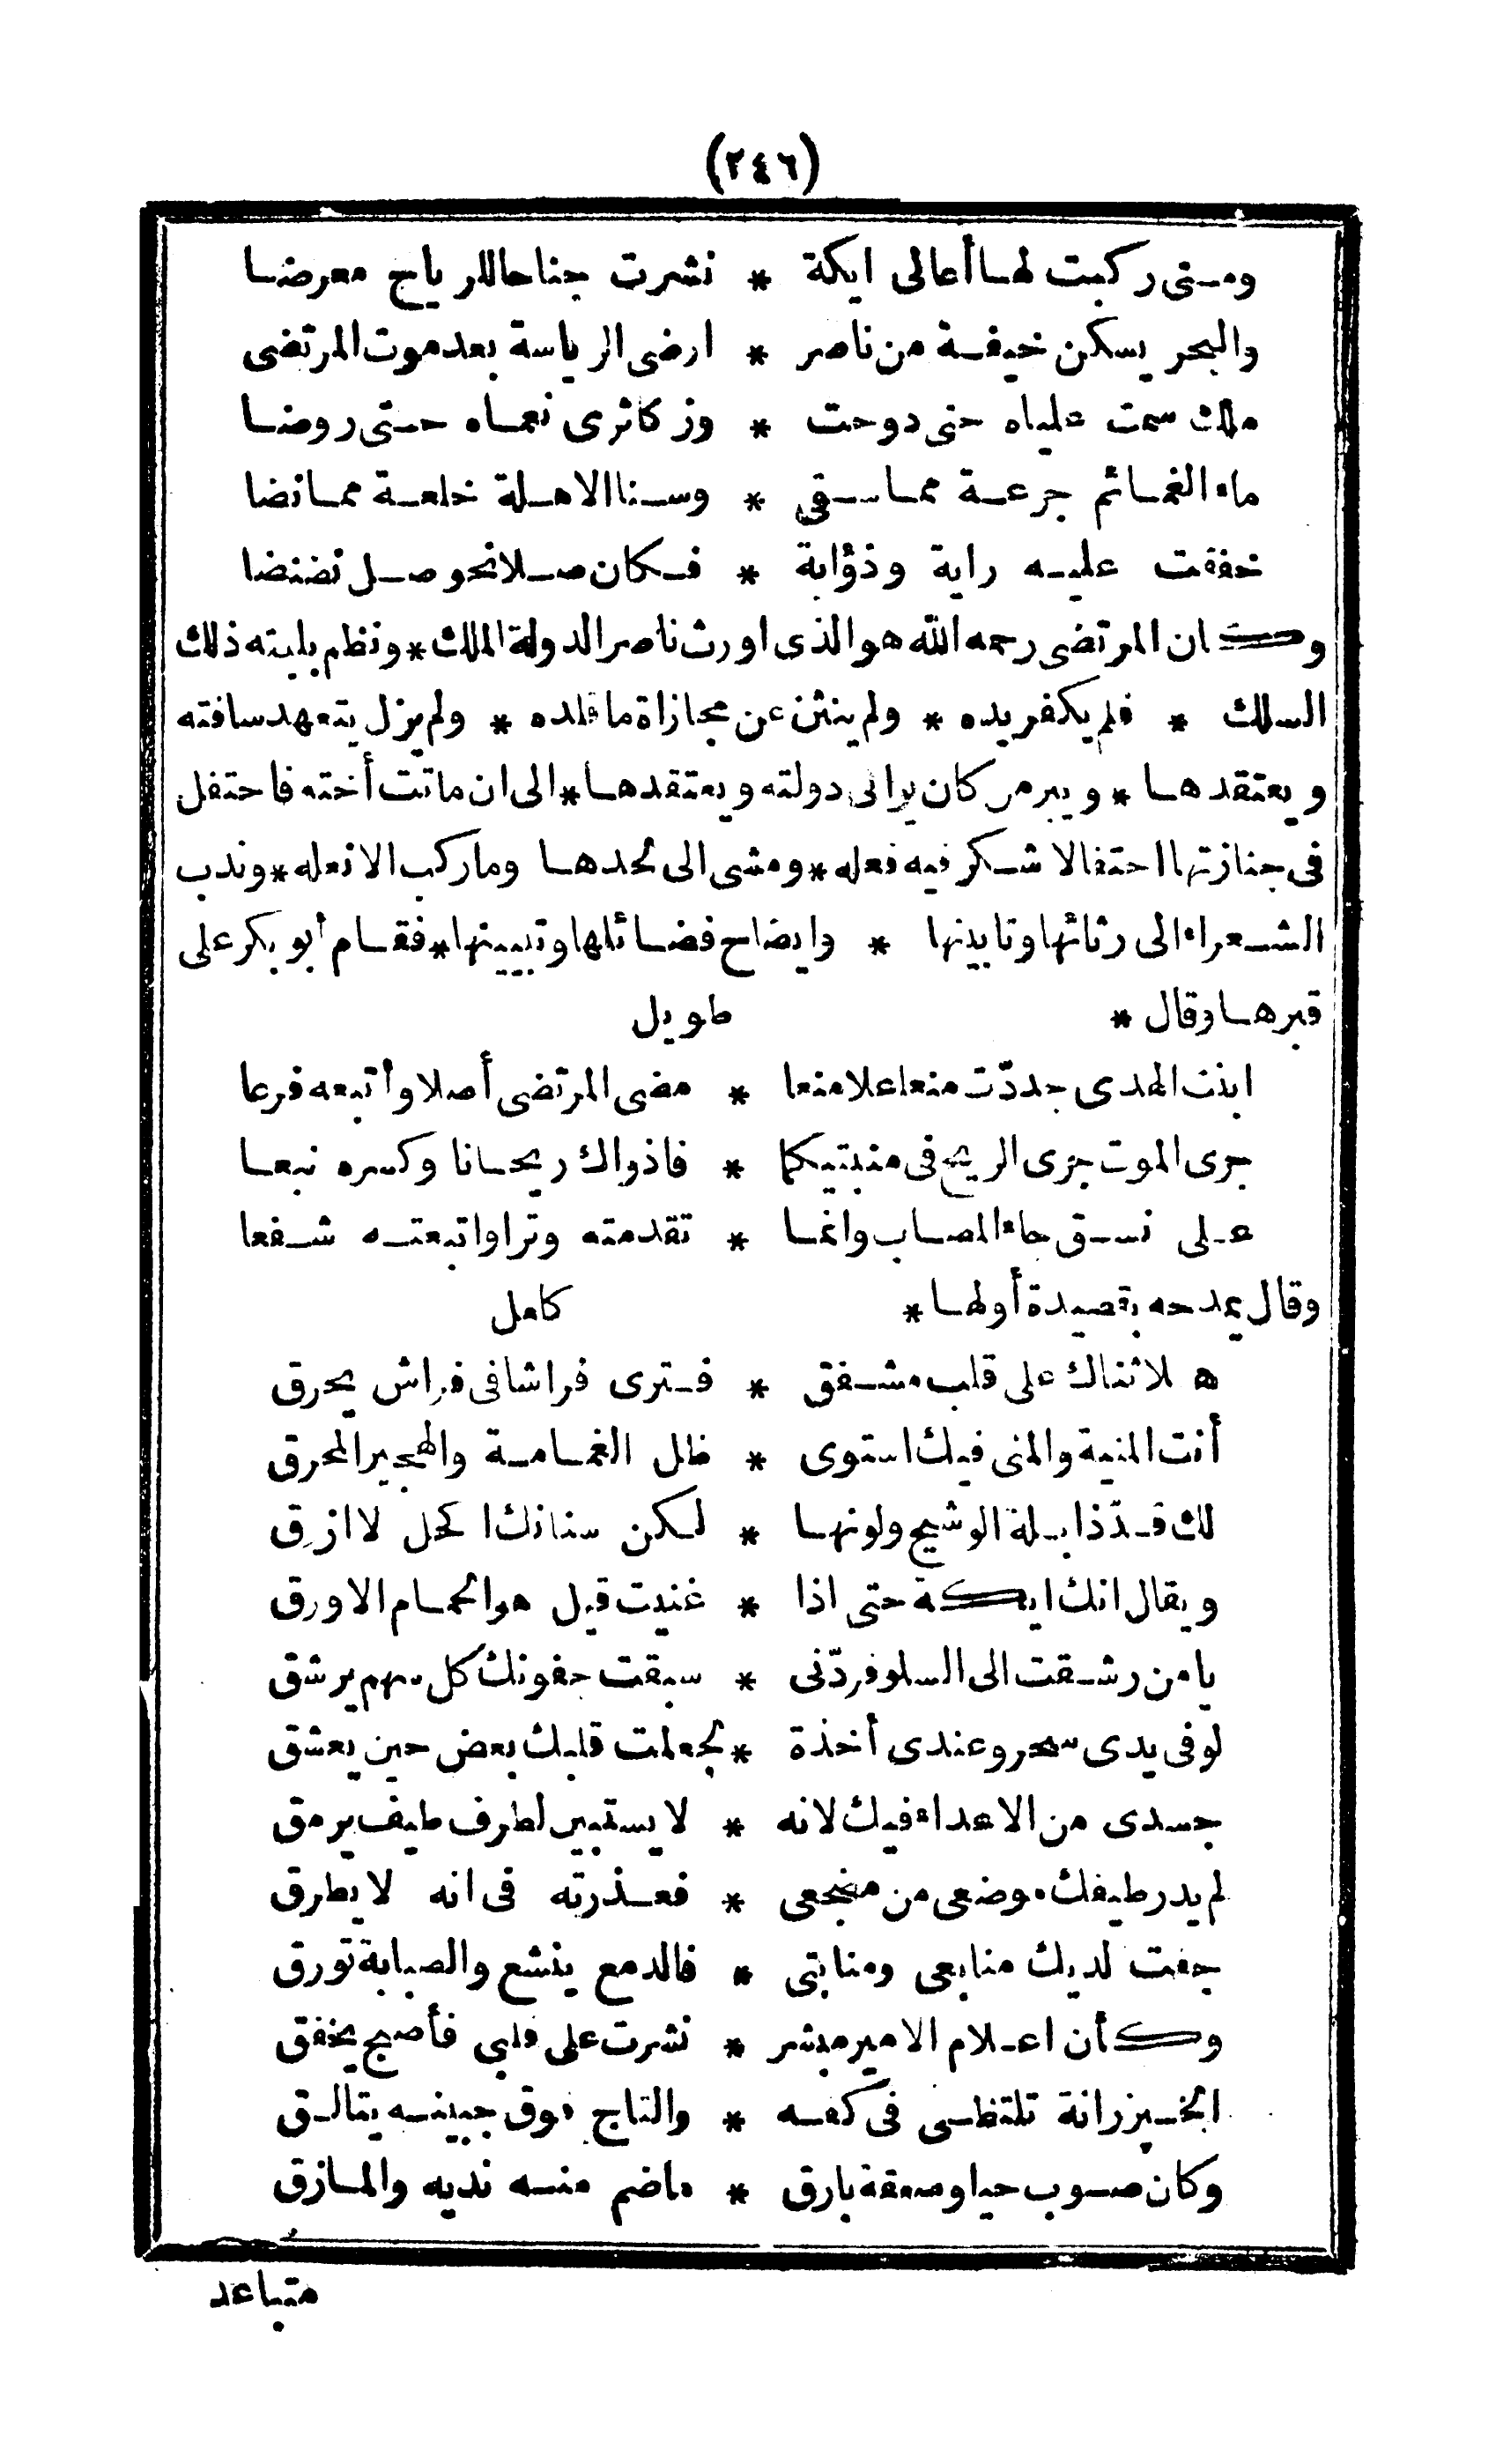 (٢٤٦)
ومتى ركبت لها أعالى ايكة * نشرت جناحا للرياح معرضا
والبحر يسكن خيفة من ناصر * ارضى الرياسة بعد موت المرتضى
ملك سمت علياه حتى دوحت * وزكا ثرى نعماه حتى روضا
ماء الغمائم جرعة مما سقى * وسنا الاهلة خلعة مما نضا
خفقت عليه راية وذؤابة * فكان صلا نحو صل نضنضا
وكان المرتضى رحمه الله هو الذى اورث ناصر الدولة الملك * ونظم بلبته ذلك
السلك * فلم يكفر يده * ولم ينثن عن مجازاة ما قلده * ولم يزل يتعهد سافته
ويعتقدها * ويبر من كان يرالى دولته ويعتقدها * الى ان ماتت أخته فاحتفل
فى جنازتها احتفالا شكر فيه فعله * ومشى الى لحدها وما ركب الا نعله * وندب
الشعراء الى رثائها وتابينها * وايضاح فضائلها وتبيينها * فقام أبو بكر على
قبرها وقال * طويل
ابنت الهدى جددّت منعا علا منعا * مضى المرتضى أصلا وأتبعه فرعا
جرى الموت جرى الريح فى منبتيكما * فاذواك ريحانا وكسره نبعا
على نسق جاء المصاب وانما * تقدمته وترا واتبعته شفعا
وقال يمدحه بقصيدة أولها * كامل
هلا ثناك على قلب مشفق * فترى فراشا فى فراش يحرق
أنت المنية والمنى فيك استوى * ظل الغمامة والهجير المحرق
لك قدّ ذابلة الوشيج ولونها * لكن سنانك اكحل لا ازرق
ويقال انك ايكة حتى اذا * غنيت قيل هو الحمام الاورق
يا من رشقت الى السلو فردّنى * سبقت جفونك كل سهم يرشق
لو فى يدى سحر وعندى أخذة * لجعلت قلبك بعض حين يعشق
جسدى من الاعداء فيك لانه * لا يستبين لطرف طيف يرمق
لم يدر طيفك موضعى من مضجعى * فعذرته فى انه لا يطرق
جفت لديك منابعى ومنابتى * فالدمع ينشع والصبابة تورق
وكأن اعلام الامير مبشر * نشرت على قلبى فأصبح يخفق
الخيزرانة تلتظى فى كفه * والتاج فوق جبينه يتالق
وكان صوب حيا وصعقة بارق * ماضم منه نديه والمازق
متباعد